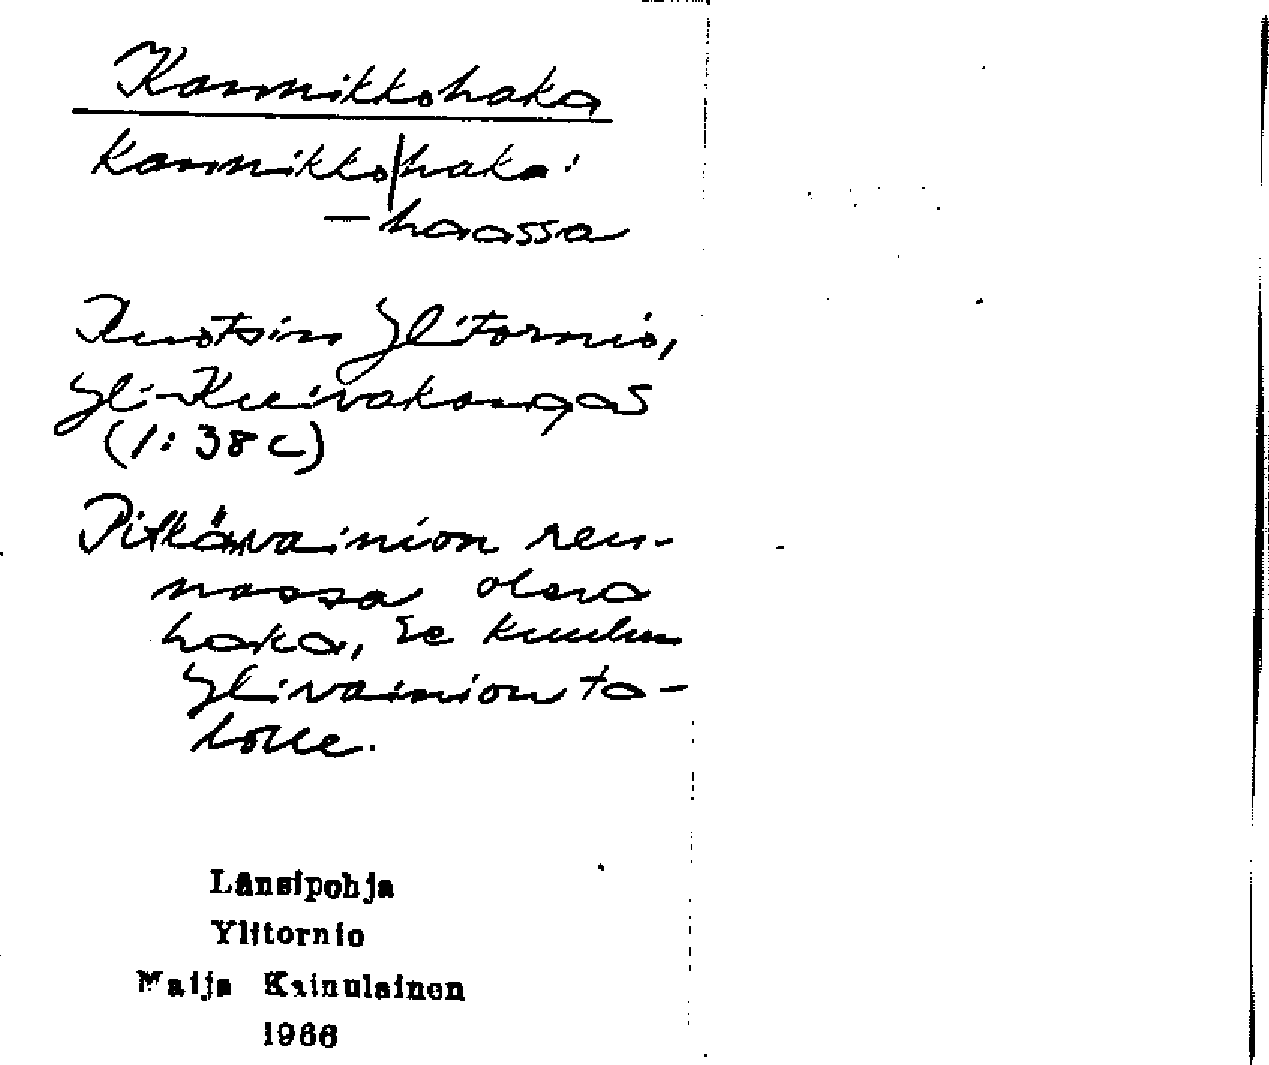 Kannikkohaka
kannikko|haka:
– haassa
Ruotsin Ylitornio,
Yli-Kuivakangas
(1:38 C)
Pitkänvainion reu-
nassa oleva
haka, Se kuuluu
Ylivainion ta-
lolle.
Länsipohja
Ylitornio
Maija Kainulainen
1966